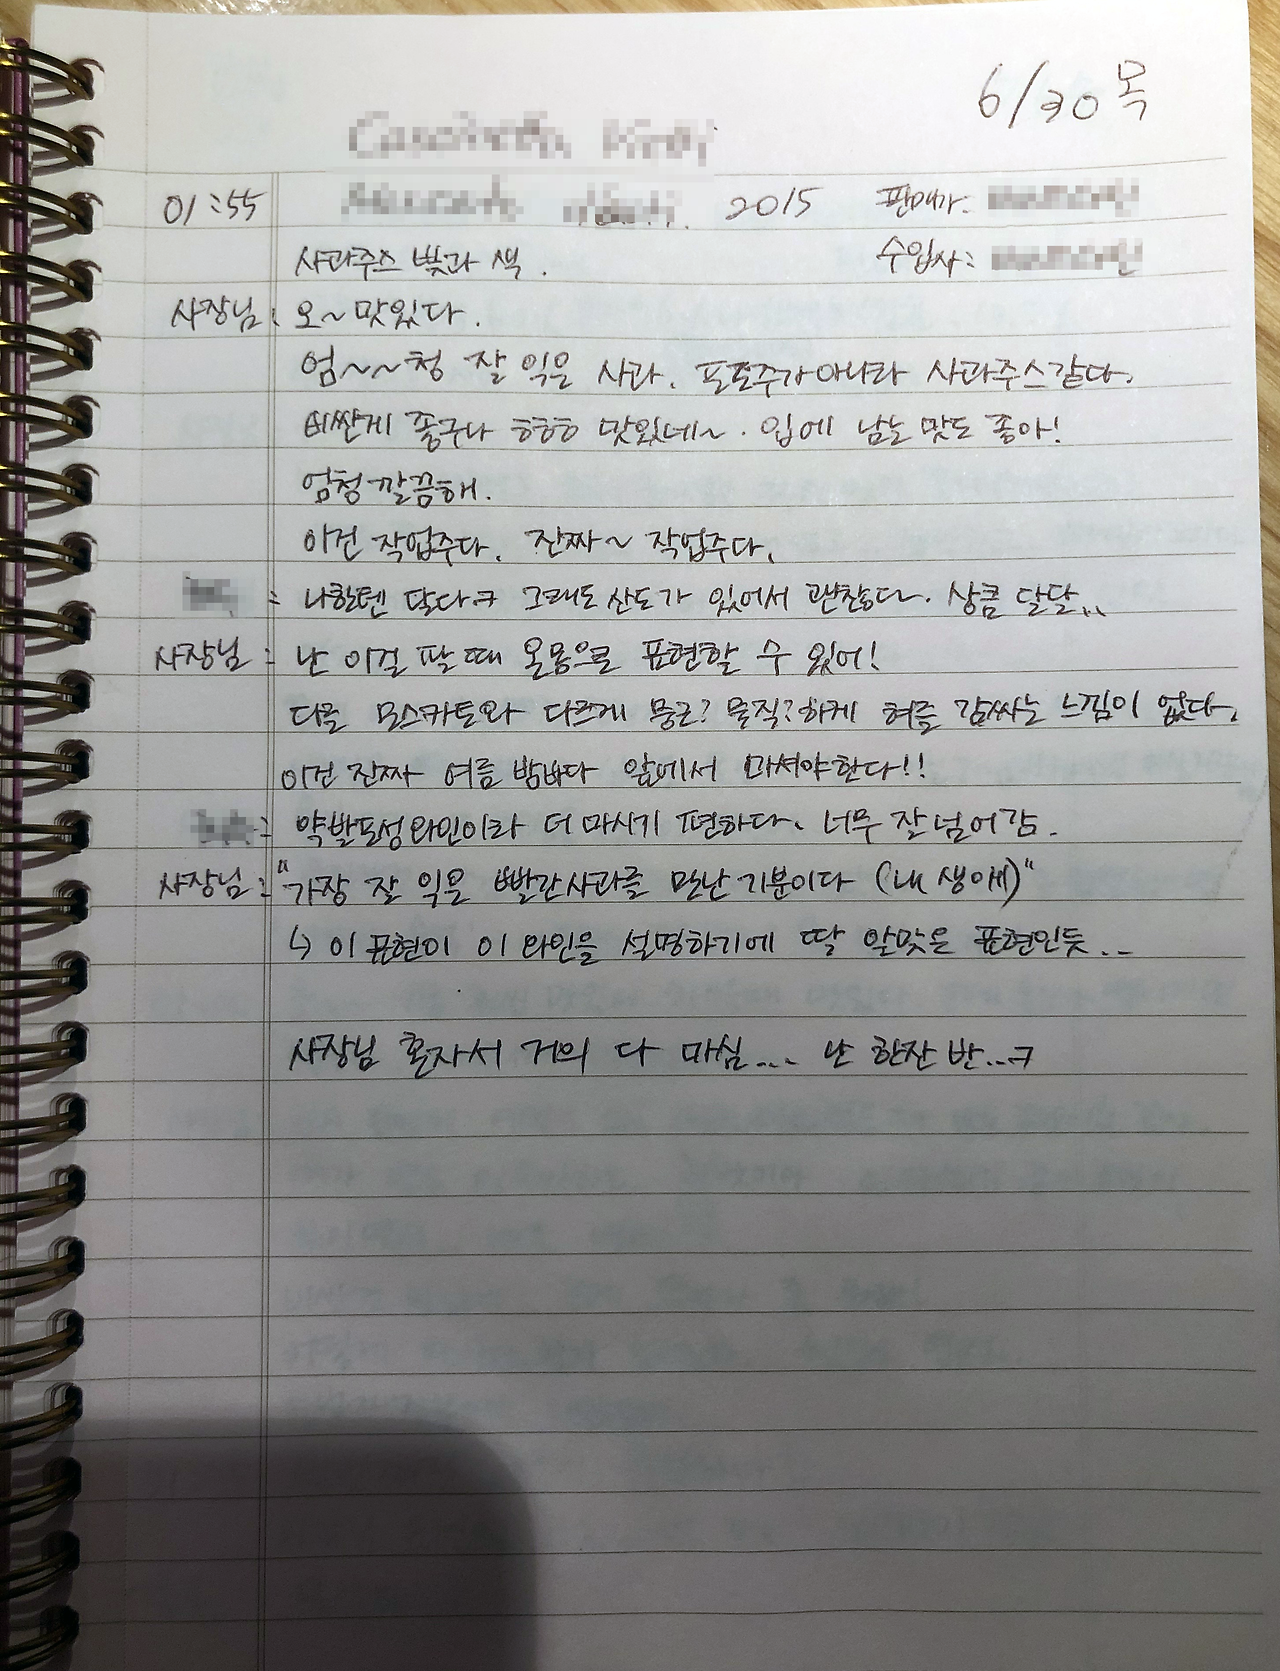 6/30 목
01:55 2015 판매가:
사과주스 빛과 색. 수입사:
사장님: 오~ 맛있다.
엄~~청 잘 익은 사과. 포도주가 아니라 사과주스같다.
비싼게 좋구나 ㅎㅎㅎ 맛있네~. 입에 남는 맛도 좋아!
엄청 깔끔해.
이건 작업주다. 진짜~ 작업주다.
: 나한텐 달다ㅋ 그래도 산도가 있어서 괜찮다. 상큼 달달..
사장님: 난 이걸 팔 때 온몸으로 표현할 수 있어!
다른 모스카토와 다르게 뭉근? 묵직?하게 혀를 감싸는 느낌이 없다.
이건 진짜 여름 밤바다 앞에서 마셔야한다!!
: 약발포성와인이라 더 마시기 편하다. 너무 잘 넘어감.
사장님: "가장 잘 익은 빨간사과를 만난 기분이다 (내 생애)"
↳ 이 표현이 이 와인을 설명하기에 딱 알맞은 표현인듯..
사장님 혼자서 거의 다 마심... 난 한잔 반..ㅋ